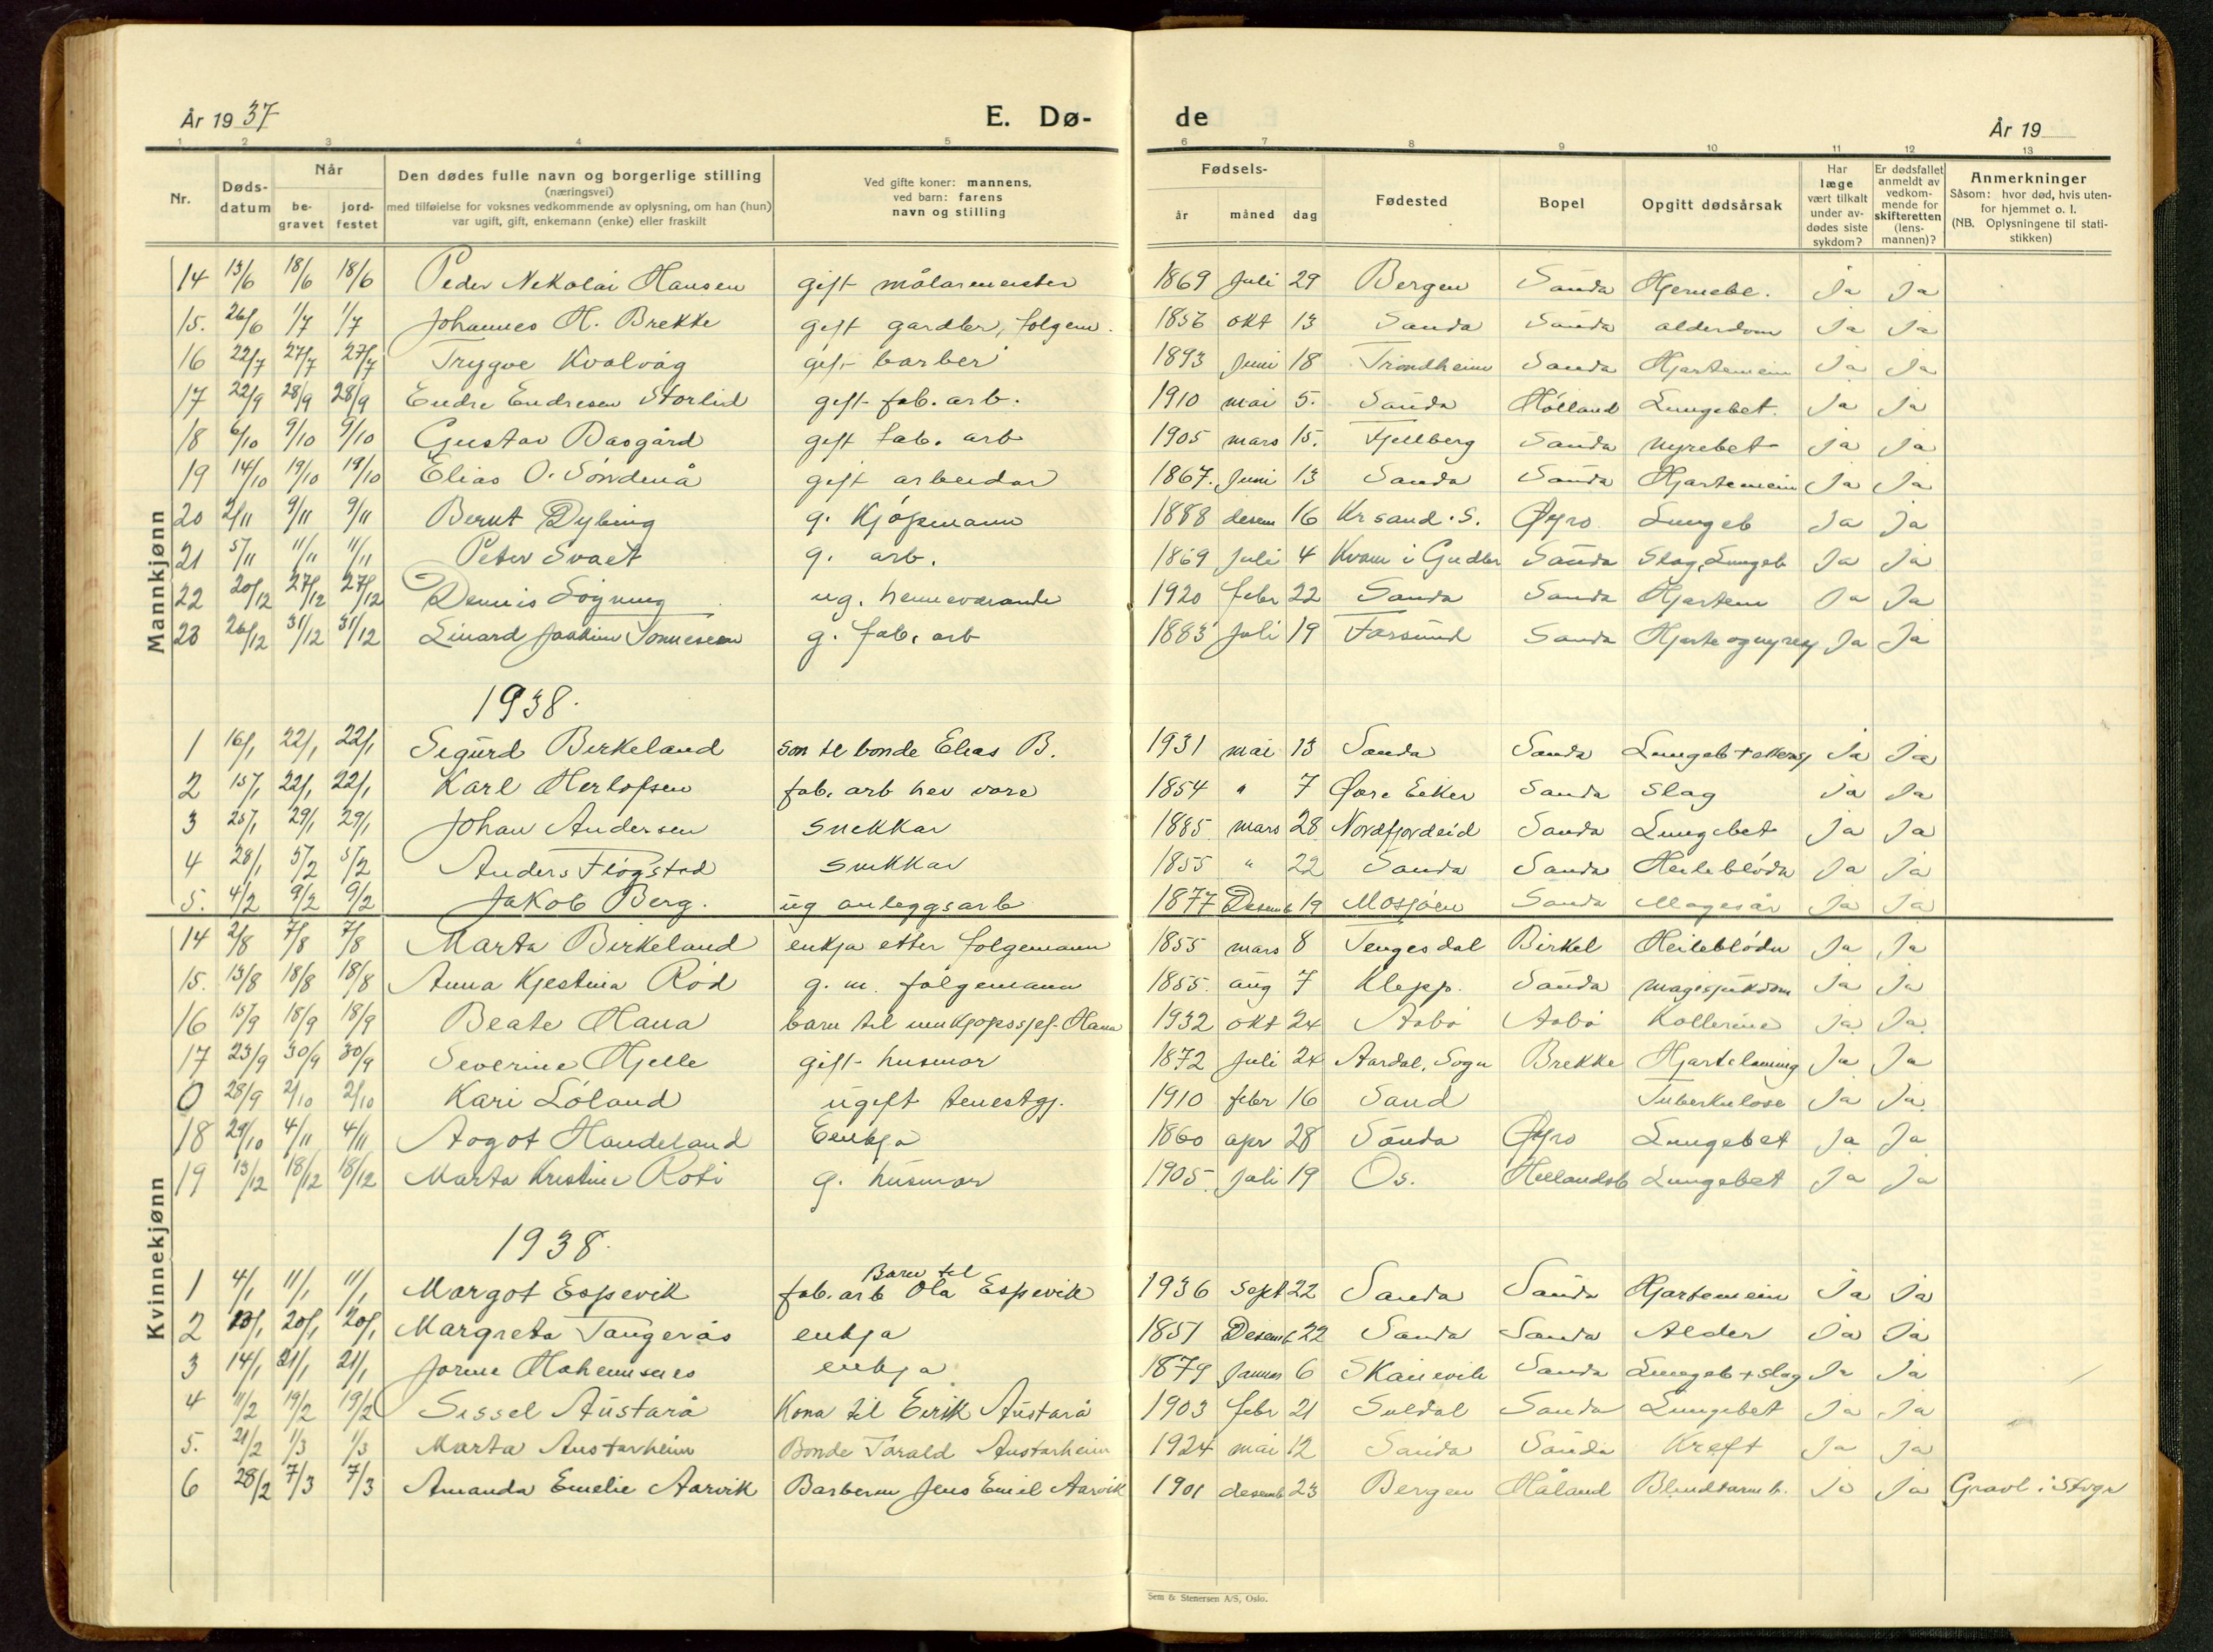 År 1937 E. Dø- de År 19
1 2 3 4 5 6 7 8 9 10 11 12 13
Nr. Døds-datum Når be-gravet jord-festet Den dødes fulle navn og borgerlige stilling (næringsvei) med tilføielse for voksnes vedkommende av oplysning, om han (hun) var ugift, gift, enkemann (enke) eller fraskilt Ved gifte koner: mannens, ved barn: farens navn og stilling Fødsels- år måned dag Fødested Bopel Opgitt dødsårsak Har læge vært tilkalt under av-dødes siste sykdom? Er dødsfallet anmeldt av vedkom-mende for skifteretten (lens-mannen)? Anmerkninger Såsom: hvor død, hvis uten-for hjemmet o. l. (NB. Oplysningene til stati-stikken)
Mannkjønn
14 13/6 18/6 18/6 Peder Nekolai Hansen gift målarmeister 1869 Juli 29 Bergen Sauda Hjernebl. Ja Ja
15. 26/6 1/7 1/7 Johannes H. Brekke gift gardbr, folgem. 1856 okt 13 Sauda Sauda alderdom Ja Ja
16 22/7 27/7 27/7 Trygve Kvalvåg gift barber 1893 Juni 18 Trondheim Sauda Hjartemein Ja Ja
17 22/9 28/9 28/9 Endre Endresen Storlid gift fab. arb. 1910 mai 5. Sauda Hólland Lungebet. Ja Ja
18 6/10 9/10 9/10 Gustav Basgård gift fab. arb 1905 mars 15. Fjellberg Sauda nyrebet Ja Ja
19 14/10 19/10 19/10 Elias O. Söndenå gift arbeidar 1867. Juni 13 Sauda Sauda Hjartemein Ja Ja
20 2/11 9/11 9/11 Bernt Dybing g. Kjópmann 1888 desem 16 Kr sand. S. Øyro Lungeb Ja Ja
21 5/11 11/11 11/11 Peter Svaet g. arb. 1869 Juli 4 Kvam i Gudbr Sauda Slag, Lungeb Ja Ja
22 20/12 27/12 27/12 Dennis Sógning ug. heimeverande 1920 febr 22 Sauda Sauda Hjartem Ja Ja
23 26/12 31/12 31/12 Einard Joakim Tönnesen g. fab. arb 1883 Juli 19 Farsund Sauda Hjarte og nyresj Ja Ja
1938.
1 16/1 22/1 22/1 Sigurd Birkeland son til bonde Elias B. 1931 mai 13 Sauda Sauda Ja Ja
2 15/1 22/1 22/1 Karl Herlofsen fab. arb hev vore 1854 " 7 Øvre Eeker Sauda Slag Ja Ja
3 25/1 29/1 29/1 Johan Andersen Snekkar 1885 mars 28 Nordfjordeid Sauda Lungebet Ja Ja
4 28/1 5/2 5/2 Anders Flógstad Snikkar 1855 " 22 Sauda Sauda Heileblóda Ja Ja
5. 4/2 9/2 9/2 Jakob Berg. ug anleggsarb 1877 Desemb 19 Mosjöen Sauda Magesår Ja Ja
Kvinnekjønn
14 2/8 7/8 7/8 Marta Birkeland enkja etter folgemann 1855 mars 8 Tengesdal Birkel Heileblódn Ja Ja
15. 13/8 18/8 18/8 Anna Kjestina Ród g. m. folgemann 1855. aug 7 Klepp. Sauda magesjukdom Ja Ja
16 15/9 18/9 18/9 Beate Hana barn til innkjøpssjef Hana 1932 okt 24 Aabó Aabó Kollerine Ja Ja
17 23/9 30/9 30/9 Severine Hjelle gift husmor 1872 Juli 24 Aardal, Sogn Brekke Hjartelaming Ja Ja
0 28/9 2/10 2/10 Kari Lóland ugift tenestgj. 1910 febr 16 Sand Tuberkulose Ja Ja
18 29/10 4/11 4/11 Aagot Handeland Eenkja 1860 apr 28 Sauda Øyro Lungebet Ja Ja
19 13/12 18/12 18/12 Marta Kristine Roti g. husmor 1905. Juli 19 Os. Hellandsb Lungebet Ja Ja
1938.
1 4/1 11/1 11/1 Margot Espevik Barn til fab. arb Ola Espevik 1936 Sept 22 Sauda Sauda Hjartemein Ja Ja
2 20/1 20/1 Margreta Tangerås enkja 1851 Desemb 22 Sauda Sauda Alder Ja Ja
3 14/1 21/1 21/1 enkja 1879 Januar 6 Skånevik Sauda Lungeb + slag Ja Ja
4 11/2 19/2 19/2 Sissel Austarå Kona til Eirik Austarå 1903 febr 21 Suldal Sauda Lungebet Ja Ja
5. 21/2 1/3 1/3 Marta Austarheim Bonde Tarald Austarheim 1924 mai 12 Sauda Sauda Kreft Ja Ja
6 28/2 7/3 7/3 Amanda Emelie Aarvik Barberm Jens Emil Aarvik 1901 desemb 23 Bergen Håland Blindtarmb. Ja Ja Gravl. i
Sem & Stenersen A/S, Oslo.